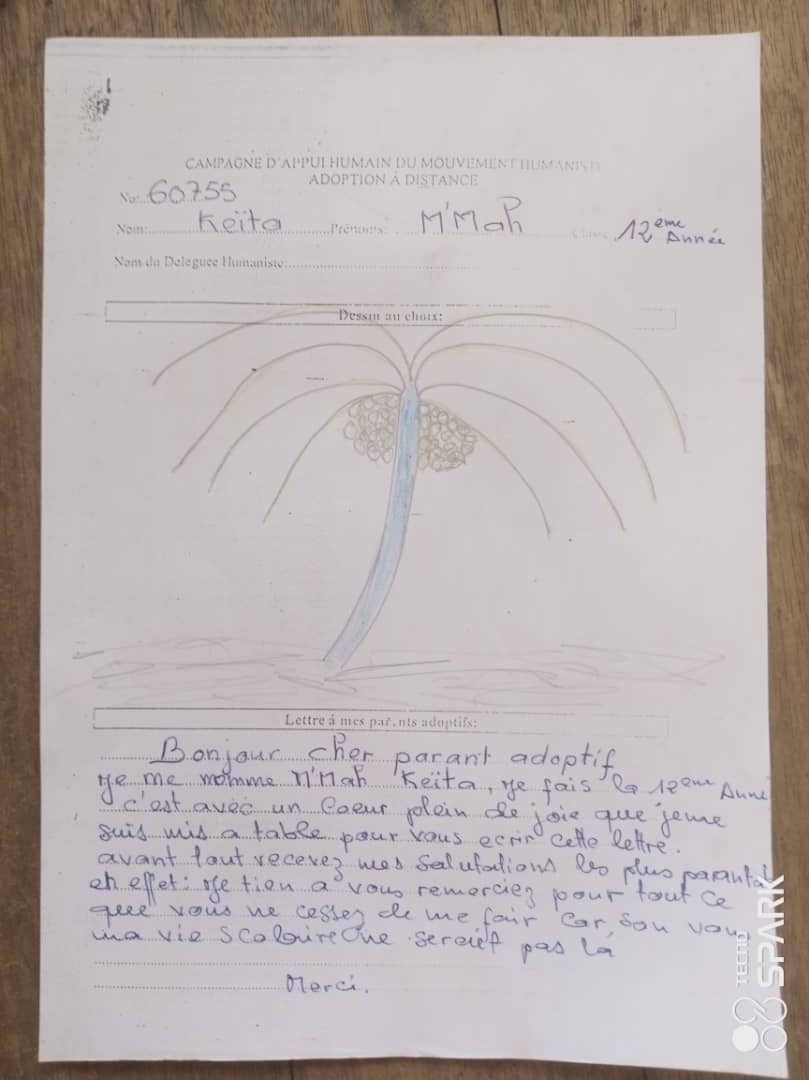 CAMPAGNE D'APPUI HUMAIN DU MOUVEMENT HUMANISTE
ADOPTION À DISTANCE
No: 60755
Nom: Keïta Prénoms: M'Mah Classe 12ème Année
Nom du Deleguee Humaniste:
Dessin au choix:
Lettre á mes parents adoptifs:
Bonjour cher parant adoptif
je me nomme M'Mah Keïta, je fais la 12ème Anné
c'est avec un Coeur plein de joie que jeme
suis mis a table pour vous ecrir cette lettre.
avant tout recevez mes salutations les plus parantal
en effet: je tien a vous remerciez pour tout ce
que vous ne cessez de me fair car san vous
ma vie scolaire ne seraief pas là
Merci.
TECNO
SPARK